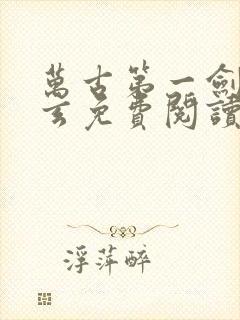 萬古第一劍
玄免費閱讀
浮萍醉